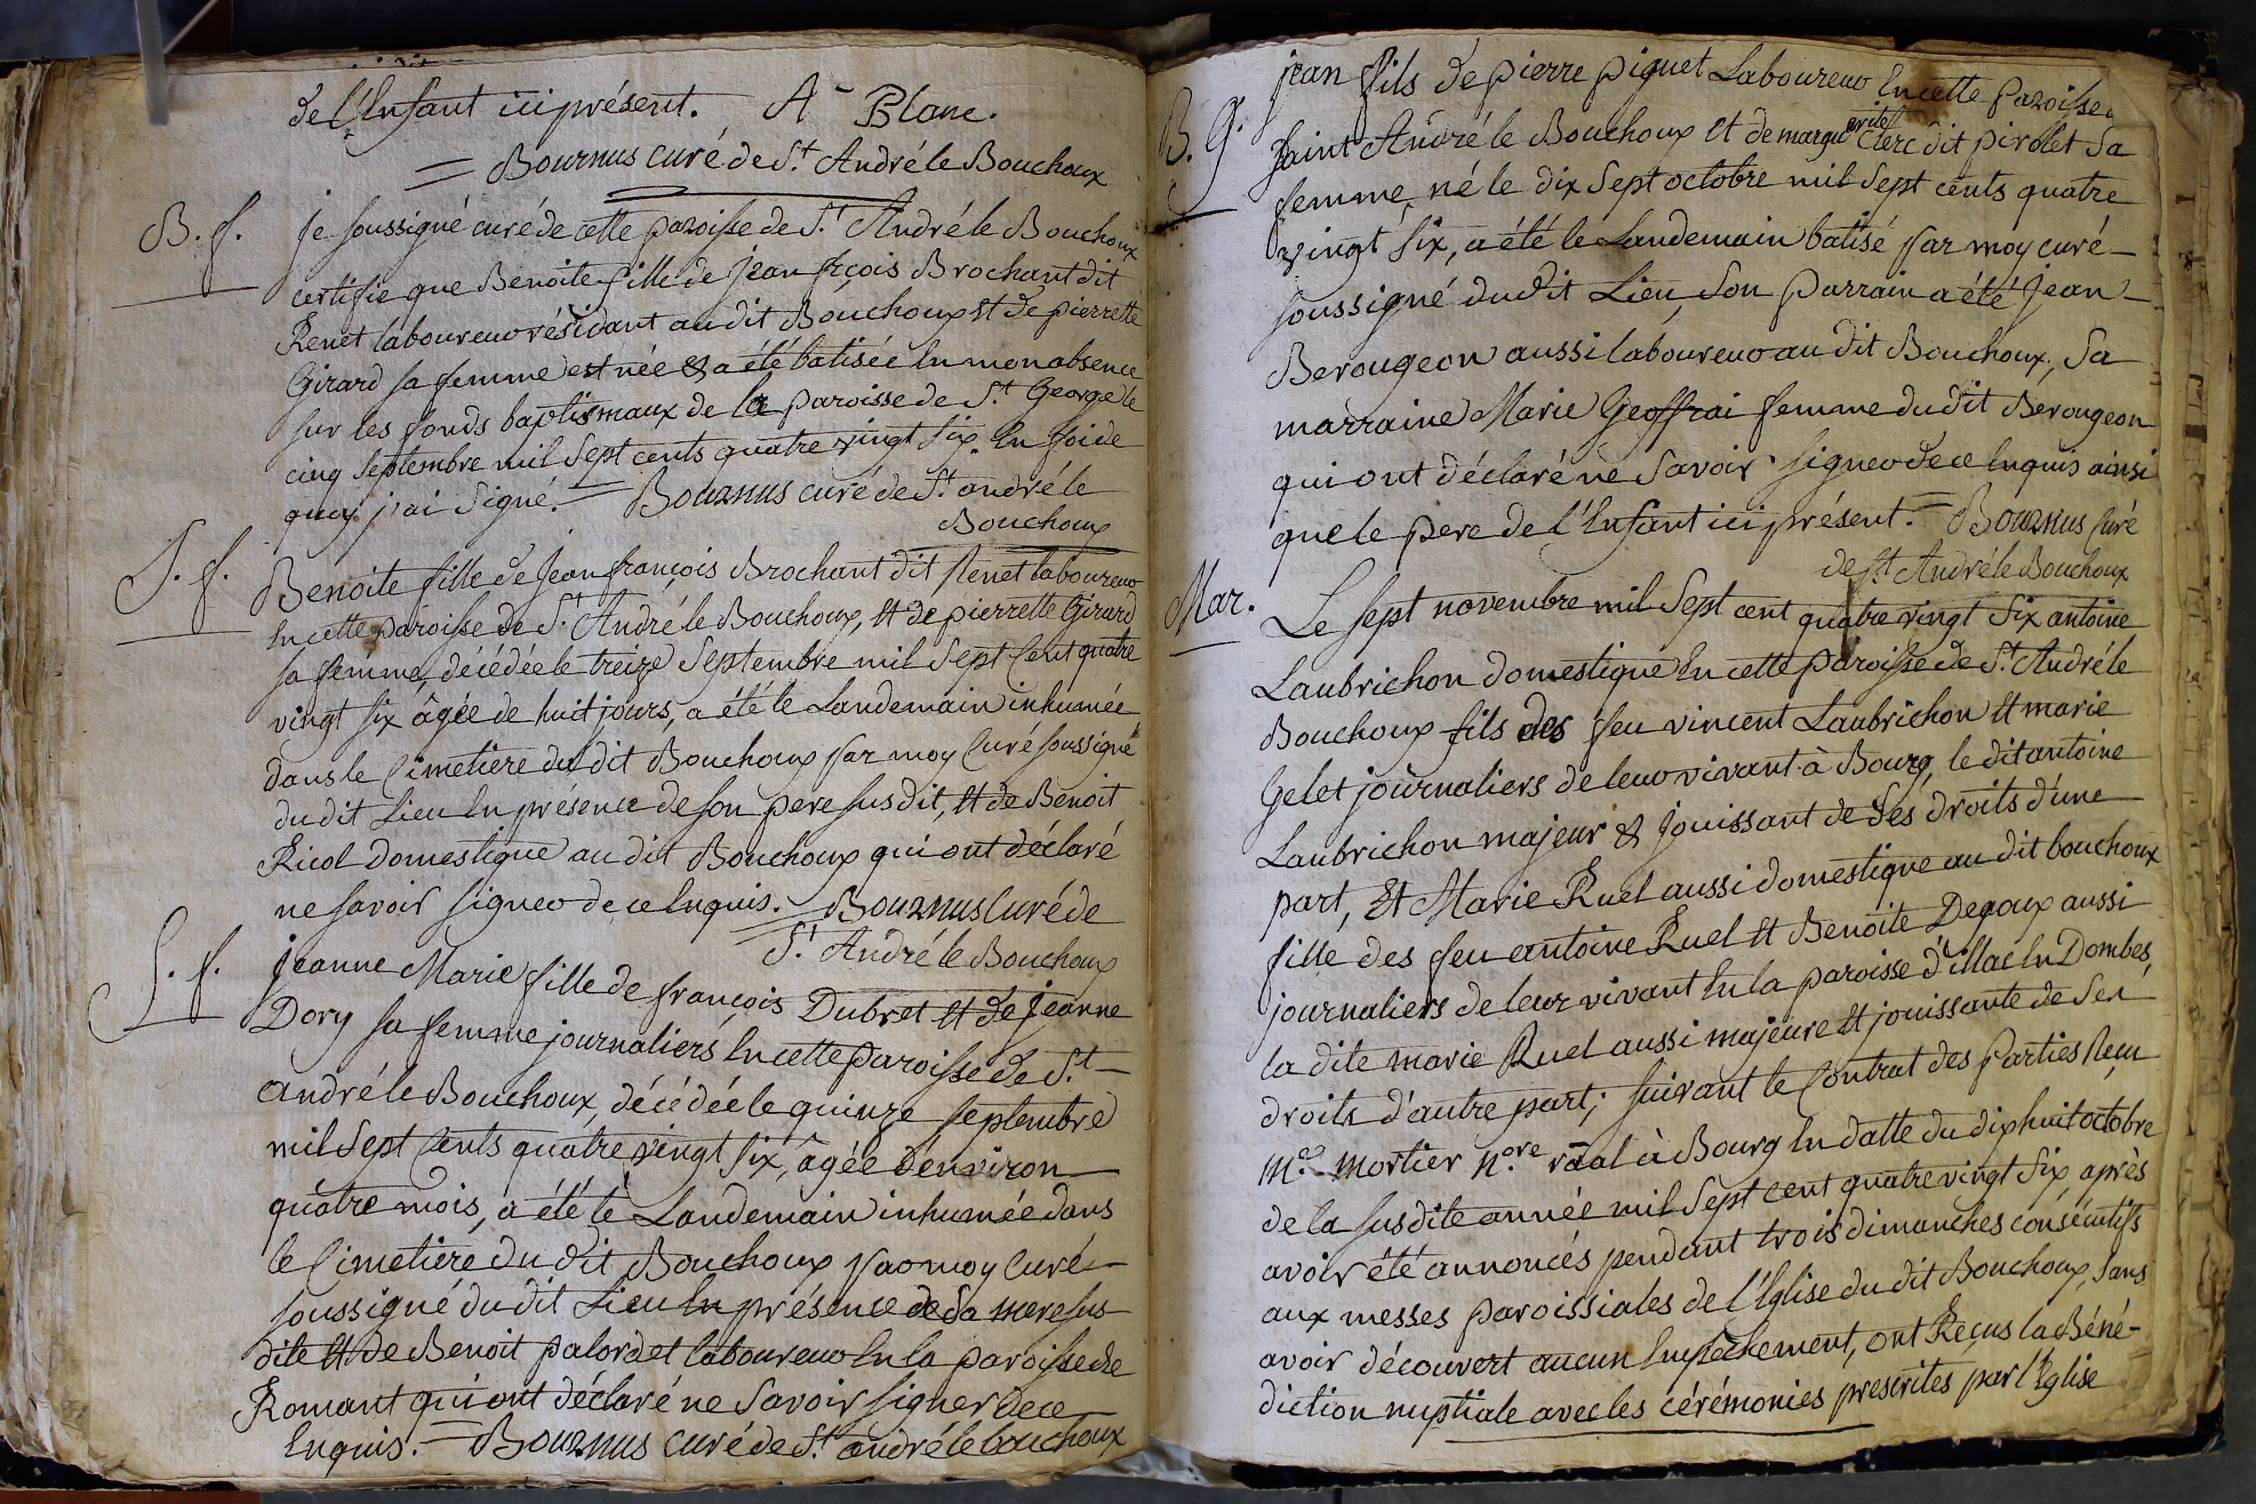 de l'Enfant ici présent. A - Blanc.
= Bournus curé de St. André le Bouchoux
B. f.
je soussigné curé de cette paroisse de St. André le Bouchoux
certifie que Benoite fille de jean fçois Brochant dit
Renet laboureur résidant au dit Bouchoux et de pierrette
Girard sa femme est née & a été batisée En mon absence
sur les fonds baptismaux de la paroisse de St. George le
cinq septembre mil sept cents quatre vingt six. En foi de
quoy j'ai signé. = Bournus curé de St. andré le
Bouchoux
S. f.
Benoite fille de Jean françois Brochant dit Renet laboureur
En cette paroisse de St. André le Bouchoux, Et de pierrette Girard
sa femme, décédée le treize septembre mil sept Cent quatre
vingt six âgée de huit jours, a été le Landemain inhumée
dans le Cimetiere du dit Bouchoux par moy Curé soussigné
du dit Lieu En présence de son pere susdit, Et de Benoit
Ricol Domestique au dit Bouchoux qui ont déclaré
ne savoir signer de ce Enquis. = Bournus Curé de
St. André le Bouchoux
S. f.
jeanne Marie fille de françois Dubret Et de jeanne
Dory sa femme journaliers En cette paroisse de St. -
andré le Bouchoux, décédée le quinze septembre
mil sept Cents quatre vingt six, âgée d'environ
quatre mois, a été le Landemain inhumée dans
le Cimetiere du dit Bouchoux par moy Curé
soussigné du dit Lieu En présence de sa mere sus
dite Et de Benoit palordet laboureur En la paroisse de
Romant qui ont déclaré ne savoir signer de ce
Enquis. = Bournus curé de St. andré le bouchoux
B. G.
jean fils de pierre piquet Laboureur En cette paroisse
saint André le Bouchoux Et de marguerite Clerc dit pirolet sa
femme, né le dix sept octobre mil sept cents quatre
vingt six, a été le Landemain batisé par moy curé -
soussigné du dit Lieu, son parrain a été jean -
Berougeon aussi laboureur au dit Bouchoux, sa
marraine Marie Geoffrai femme du dit Berougeon
qui ont déclaré ne savoir signer de ce Enquis ainsi
que le pere de l'Enfant ici présent. = Bournus Curé
de St. André le Bouchoux
Mar.
Le sept novembre mil sept cent quatre vingt six antoine
Laubrichon domestique En cette paroisse de St. André le
Bouchoux fils des feu vincent Laubrichon Et marie
Gelet journaliers de leur vivant à Bourg, le dit antoine
Laubrichon majeur & jouissant de ses droits d'une
part, Et Marie Ruel aussi domestique au dit bouchoux
fille des feu antoine Ruel Et Benoite Degoux aussi
journaliers de leur vivant En la paroisse d'illac En Dombes,
la dite marie Ruel aussi majeure Et jouissante de ses
droits d'autre part; suivant le Contrat des Parties Reçu
Me. Mortier N.ore roal à Bourg En datte du dixhuit octobre
de la susdite année mil sept cent quatre vingt six après
avoir été annoncés pendant trois dimanches consécutifs
aux messes paroissiales de l'Eglise du dit Bouchoux, sans
avoir découvert aucun Empêchement, ont Reçus la Béné-
diction nuptiale avec les cérémonies prescrites par l'Eglise